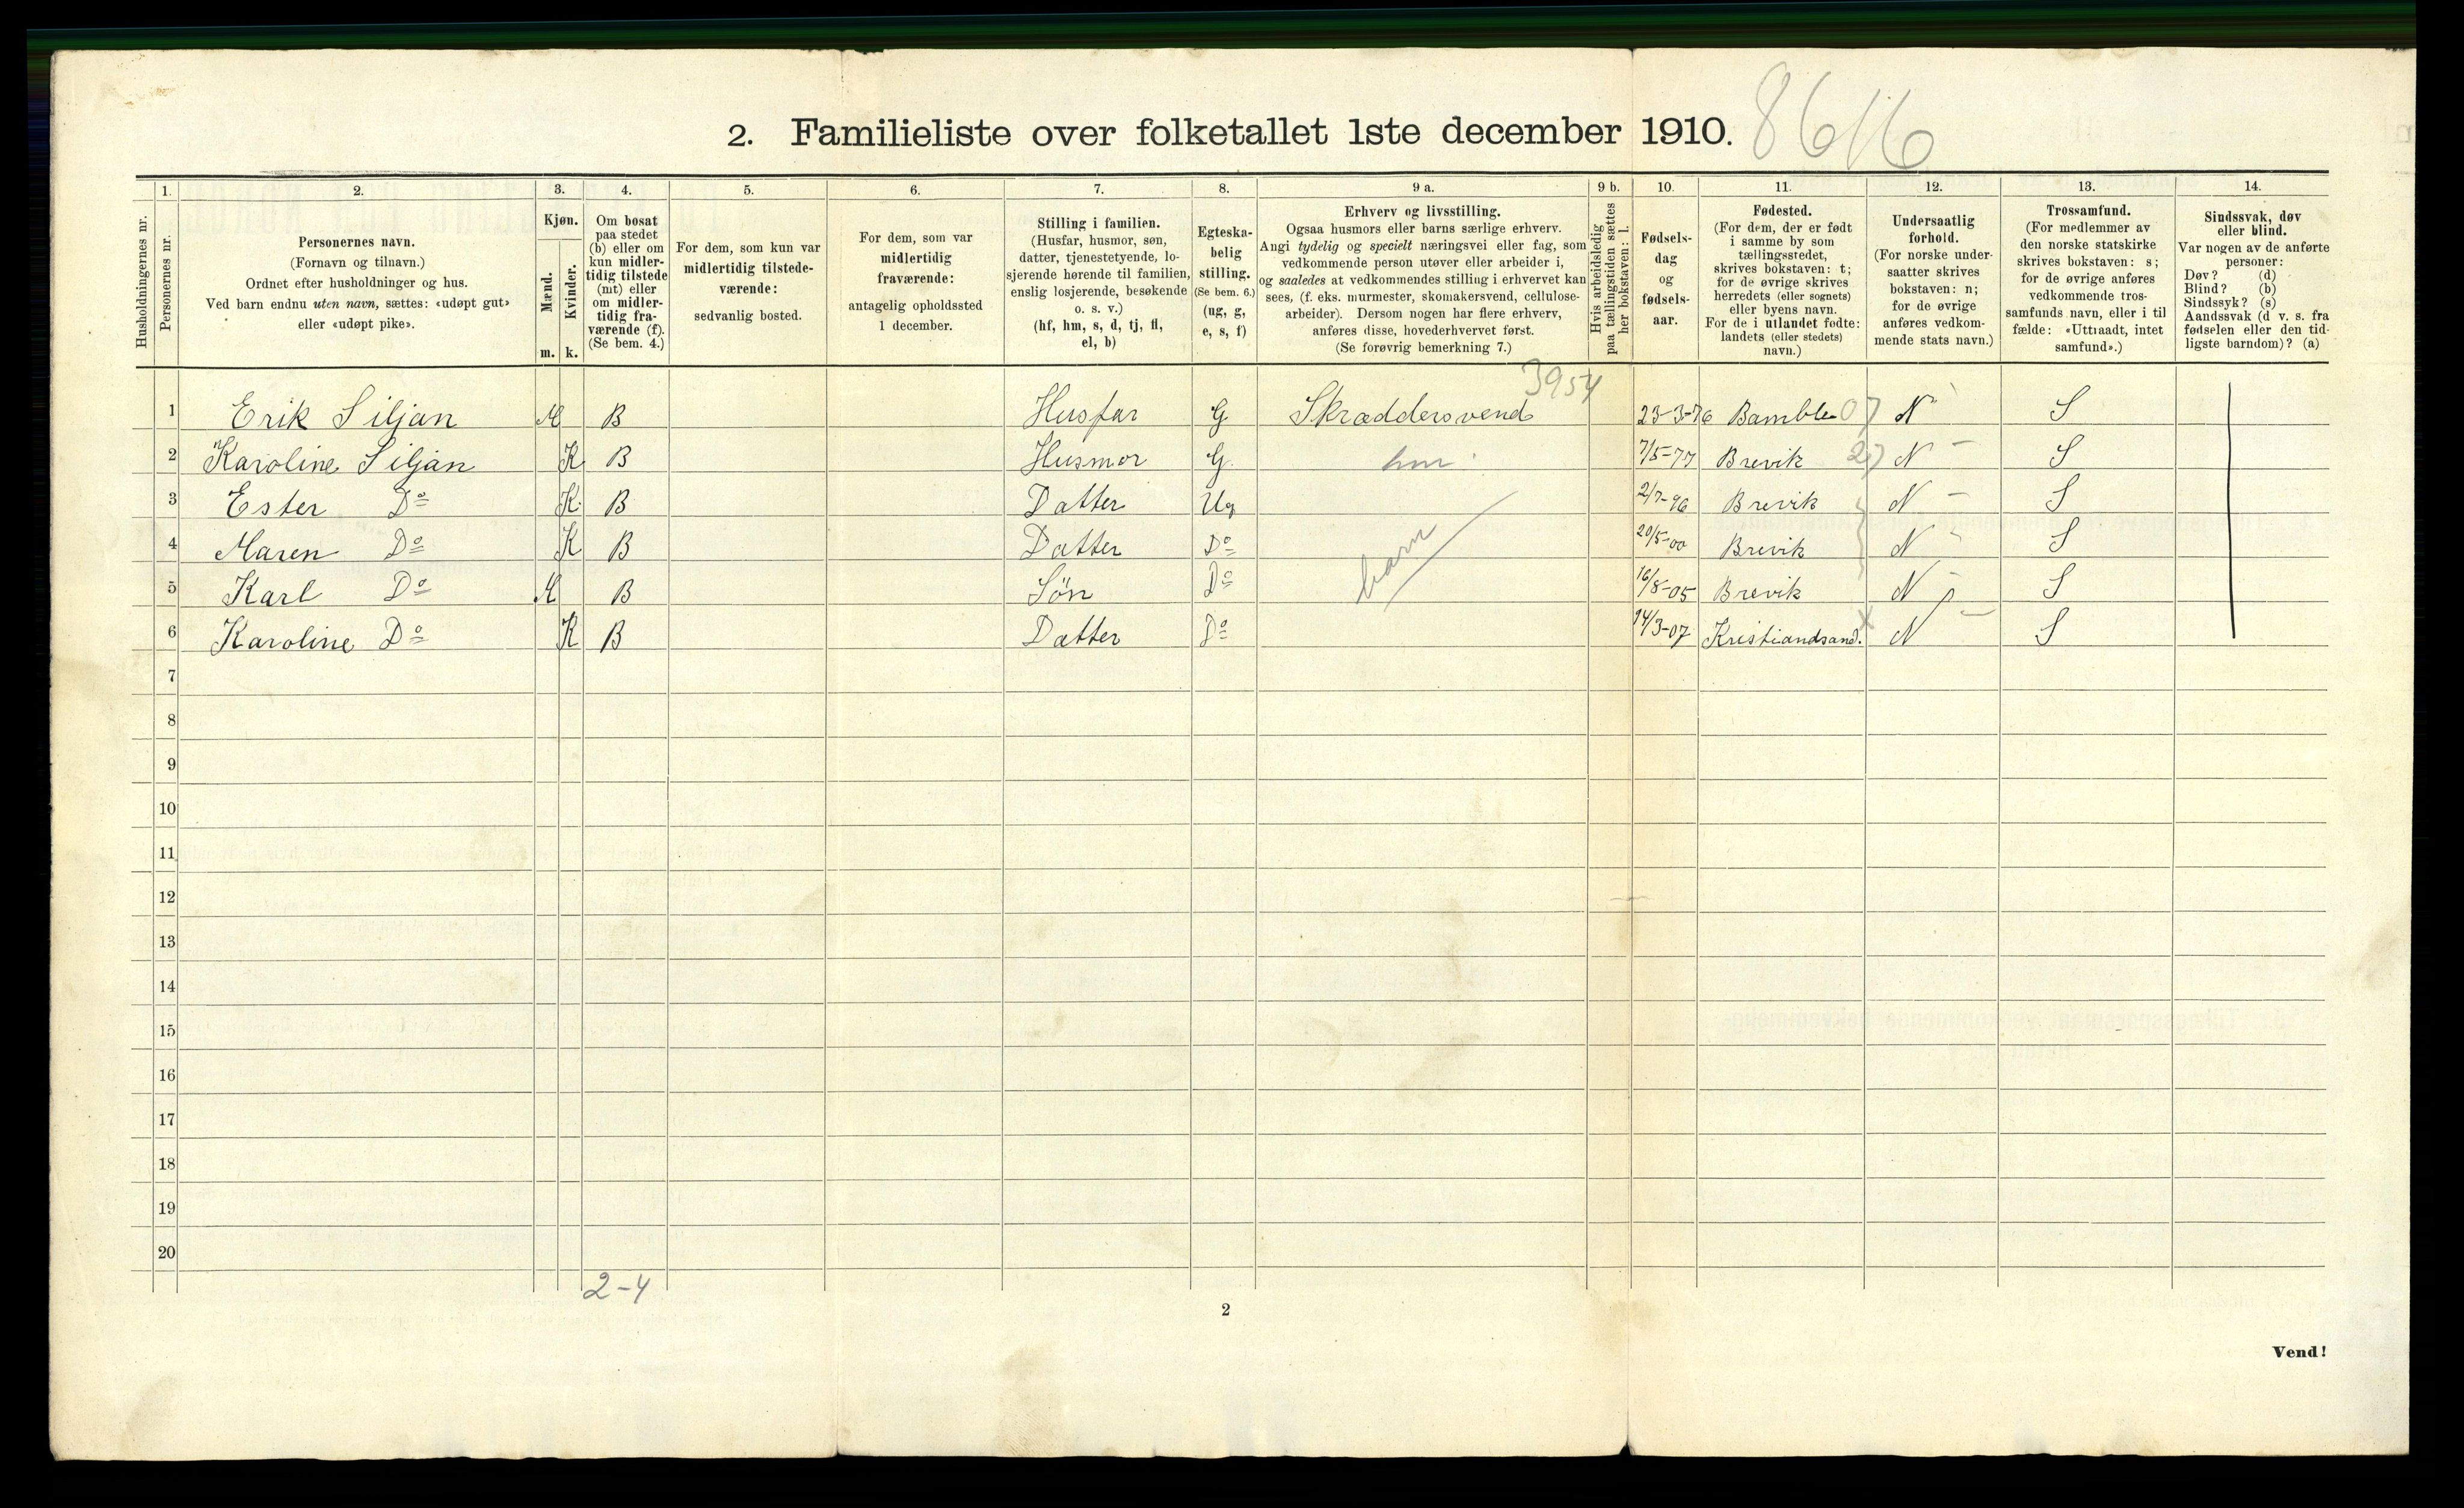 2. Familieliste over folketallet 1ste december 1910. 8616
1. 2. 3. 4. 5. 6. 7. 8. 9 a. 9 b. 10. 11. 12. 13. 14.
Husholdningernes nr.
Personernes nr.
Personernes navn.
(Fornavn og tilnavn.)
Ordnet efter husholdninger og hus.
Ved barn endnu uten navn, sættes: «udøpt gut»
eller «udøpt pike».
Kjøn.
Mænd.
Kvinder.
m. k.
Om bosat
paa stedet
(b) eller om
kun midler-
tidig tilstede
(mt) eller
om midler-
tidig fra-
værende (f).
(Se bem. 4.)
For dem, som kun var
midlertidig tilstede-
værende:
sedvanlig bosted.
For dem, som var
midlertidig
fraværende:
antagelig opholdssted
1 december.
Stilling i familien.
(Husfar, husmor, søn,
datter, tjenestetyende, lo-
sjerende hørende til familien,
enslig losjerende, besøkende
o. s. v.)
(hf, hm, s, d, tj, fl,
el, b)
Egteska-
belig
stilling.
(Se bem. 6.)
(ug, g,
e, s, f)
Erhverv og livsstilling.
Ogsaa husmors eller barns særlige erhverv.
Angi tydelig og specielt næringsvei eller fag, som
vedkommende person utøver eller arbeider i,
og saaledes at vedkommendes stilling i erhvervet kan
sees, (f. eks. murmester, skomakersvend, cellulose-
arbeider). Dersom nogen har flere erhverv,
anføres disse, hovederhvervet først.
(Se forøvrig bemerkning 7.)
Hvis arbeidsledig
paa tællingstiden sættes
her bokstaven: l.
Fødsels-
dag
og
fødsels-
aar.
Fødested.
(For dem, der er født
i samme by som
tællingsstedet,
skrives bokstaven: t;
for de øvrige skrives
herredets (eller sognets)
eller byens navn.
For de i utlandet fødte:
landets (eller stedets)
navn.)
Undersaatlig
forhold.
(For norske under-
saatter skrives
bokstaven: n;
for de øvrige
anføres vedkom-
mende stats navn.)
Trossamfund.
(For medlemmer av
den norske statskirke
skrives bokstaven: s;
for de øvrige anføres
vedkommende tros-
samfunds navn, eller i til
fælde: «Uttraadt, intet
samfund».)
Sindssvak, døv
eller blind.
Var nogen av de anførte
personer:
Døv? (d)
Blind? (b)
Sindssyk? (s)
Aandssvak (d v. s. fra
fødselen eller den tid-
ligste barndom)? (a)
3954
1 Erik Siljan M B Husfar G Skræddersvend 23-3-76 Bamble 07 N S
2 Karoline Siljan K B Husmor G. hm 7/5-77 Brevik 27 N – S
3 Ester Do K. B Datter Ug 2/7-96 Brevik N – S
4 Maren Do K B Datter Do barn 20/5-00 Brevik N S
5 Karl Do M B Søn Do 16/8-05 Brevik N S
6 Karoline Do K B Datter Do 14/3-07 Kristiandsand. x N – S
7
8
9
10
11
12
13
14
15
16
17
18
19
20
2-4
2
Vend!